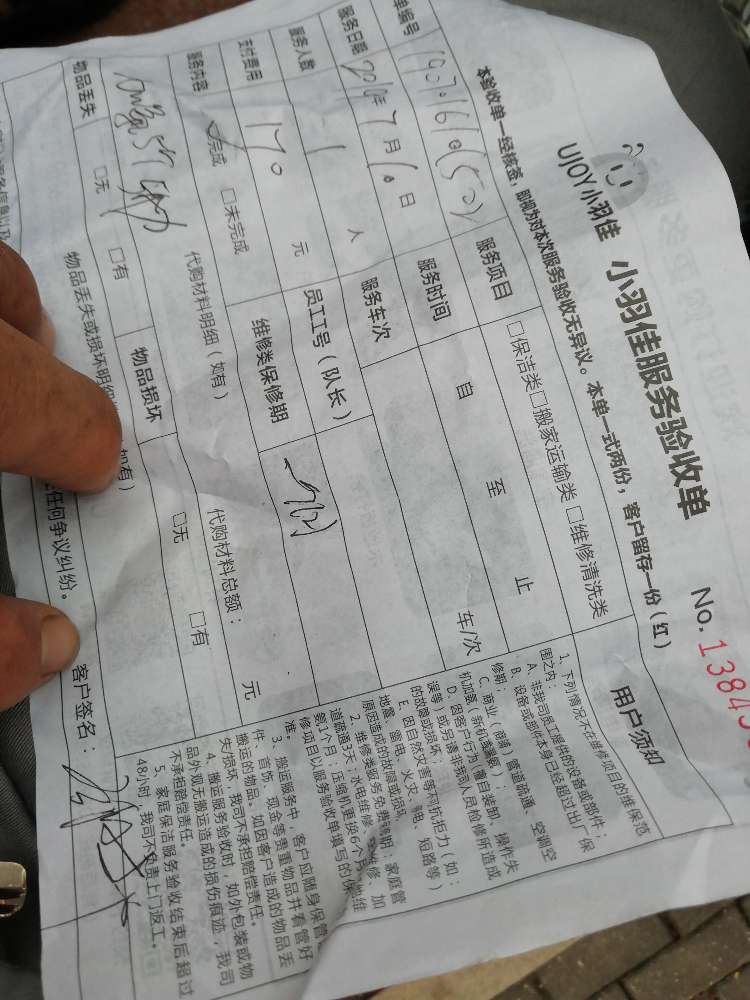 UJOY 小羽佳 小羽佳服务验收单
No. 1384
本验收单一经核签，即视为对本次服务验收无异议。本单一式两份，客户留存一份（红）
单编号
服务项目 □保洁类□搬家运输类□维修清洗类
服务日期 2019年7月10日
服务时间 自 至 止
服务人数 1 人
服务车次 车/次
支付费用 170 元
员工工号（队长）
服务内容
维修类保修期
完成 □未完成
代购材料明细（如有）
代购材料总额： 元
物品丢失 □无 □有
物品损坏 □无 □有
物品丢失或损坏明细 如有）
任何争议纠纷。 客户签名：
用户须知
1、下列情况不在维修项目的维保范
围之内：
A、非我司员工提供的设备或部件；
B、设备或部件本身已经超过出厂保
修期；
C、商业（商铺）管道疏通、空调空
机加氨、新机
D、因客户行为（擅自装卸、操作失
误等）或另请非我司人员检修所造成
的故障或损坏；
E、因自然灾害等不可抗拒力（如：
地震、雷电、火灾、 电、短路等）
原因造成的故障或损坏
2、维修类服务免费 期：家庭管
道疏通3天；水电维修、 维修、加
氨1个月；压缩机更换6个月 他维
修项目以服务验收单填写的保
准。
3、搬运服务中，客户应随身保管
件、首饰、现金等贵重物品并看管好
搬运的物品。如因客户造成的物品丢
失与损坏，我司不承担赔偿责任。
4、搬运服务验收时，如外包装或物
品外观无搬运造成的损伤痕迹，我司
不承担赔偿责任。
5、家庭保洁服务验收结束后超过
48小时，我司不负责上门返工。